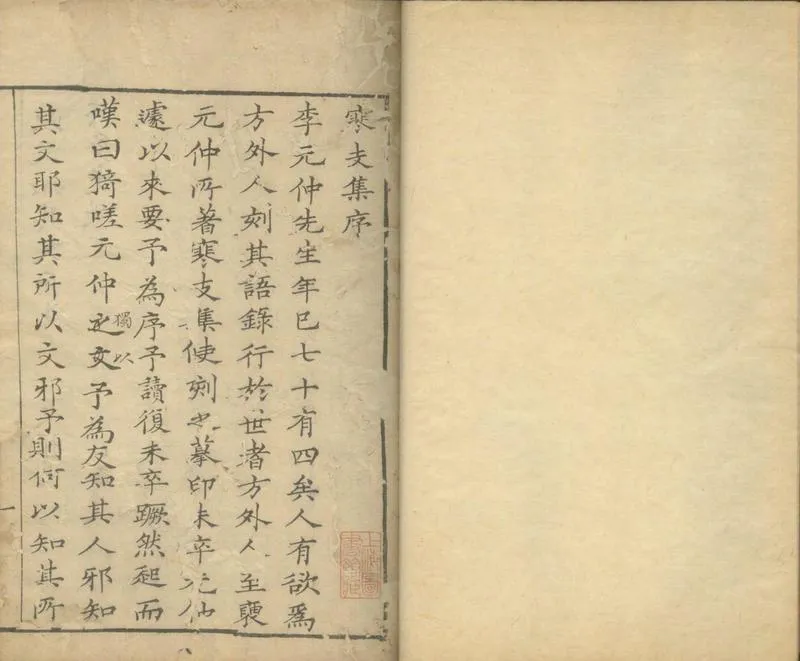 寒支集序
李元仲先生年已七十有四矣人有欲為
方外人刻其語錄行於世者方外人至褎
元仲所著寒支集使刻之摹印未卒元仲
遽以來要予為序予讀復未卒蹶然起而
嘆曰猗嗟元仲之文獨以予為友知其人邪知
其文耶知其所以文邪予則何以知其所
一
上海圖書館藏